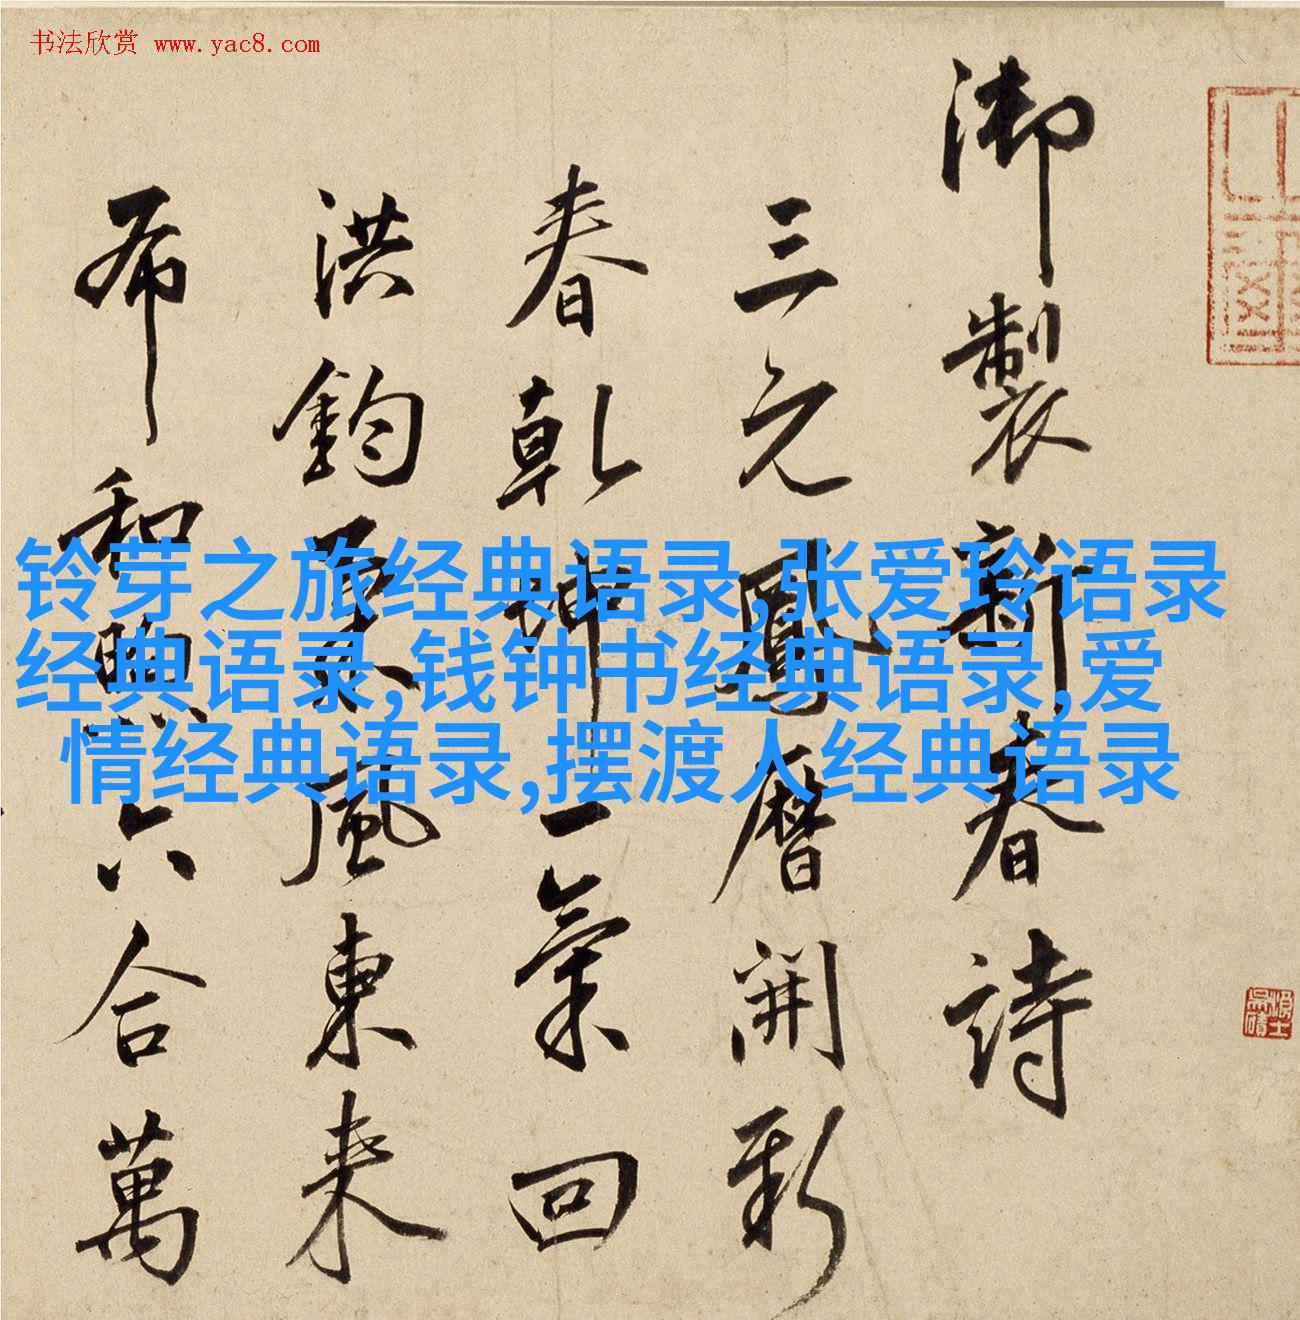 书法欣赏 www.yac8.com
御製新春詩
三元鳳曆開新
春乾坤一氣回
洪鈞風東来
布和煦六合萬
铃芽之旅经典语录,张爱玲语录
经典语录,钱钟书经典语录,爱
情经典语录,摆渡人经典语录